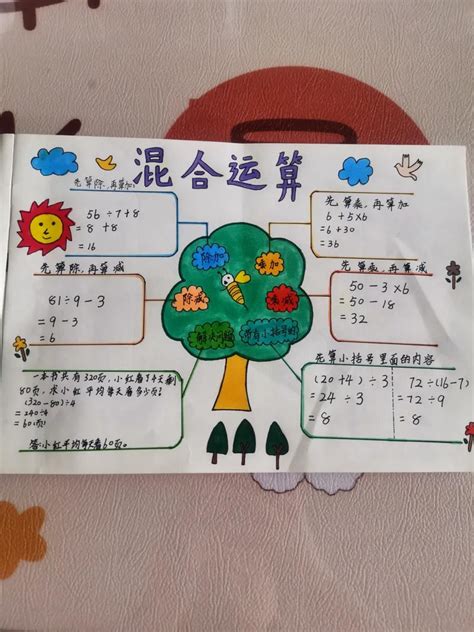 混合运算
先算除,再算加
56÷7+8
=8+8
=16
先算除,再算减
81÷9-3
=9-3
=6
一本书共有320页,小红看了4天剩
80页,求小红平均每天看多少页?
(320-80)÷4
=240÷4
=60(页)
答:小红平均每天看60页。
除加
乘加
除减
乘减
解决问题
带有小括号的
先算乘,再算加
6+5×6
=6+30
=36
先算乘,再算减
50-3×6
=50-18
=32
先算小括号里面的内容
(20+4)÷3
=24÷3
=8
72÷(16-7)
=72÷9
=8